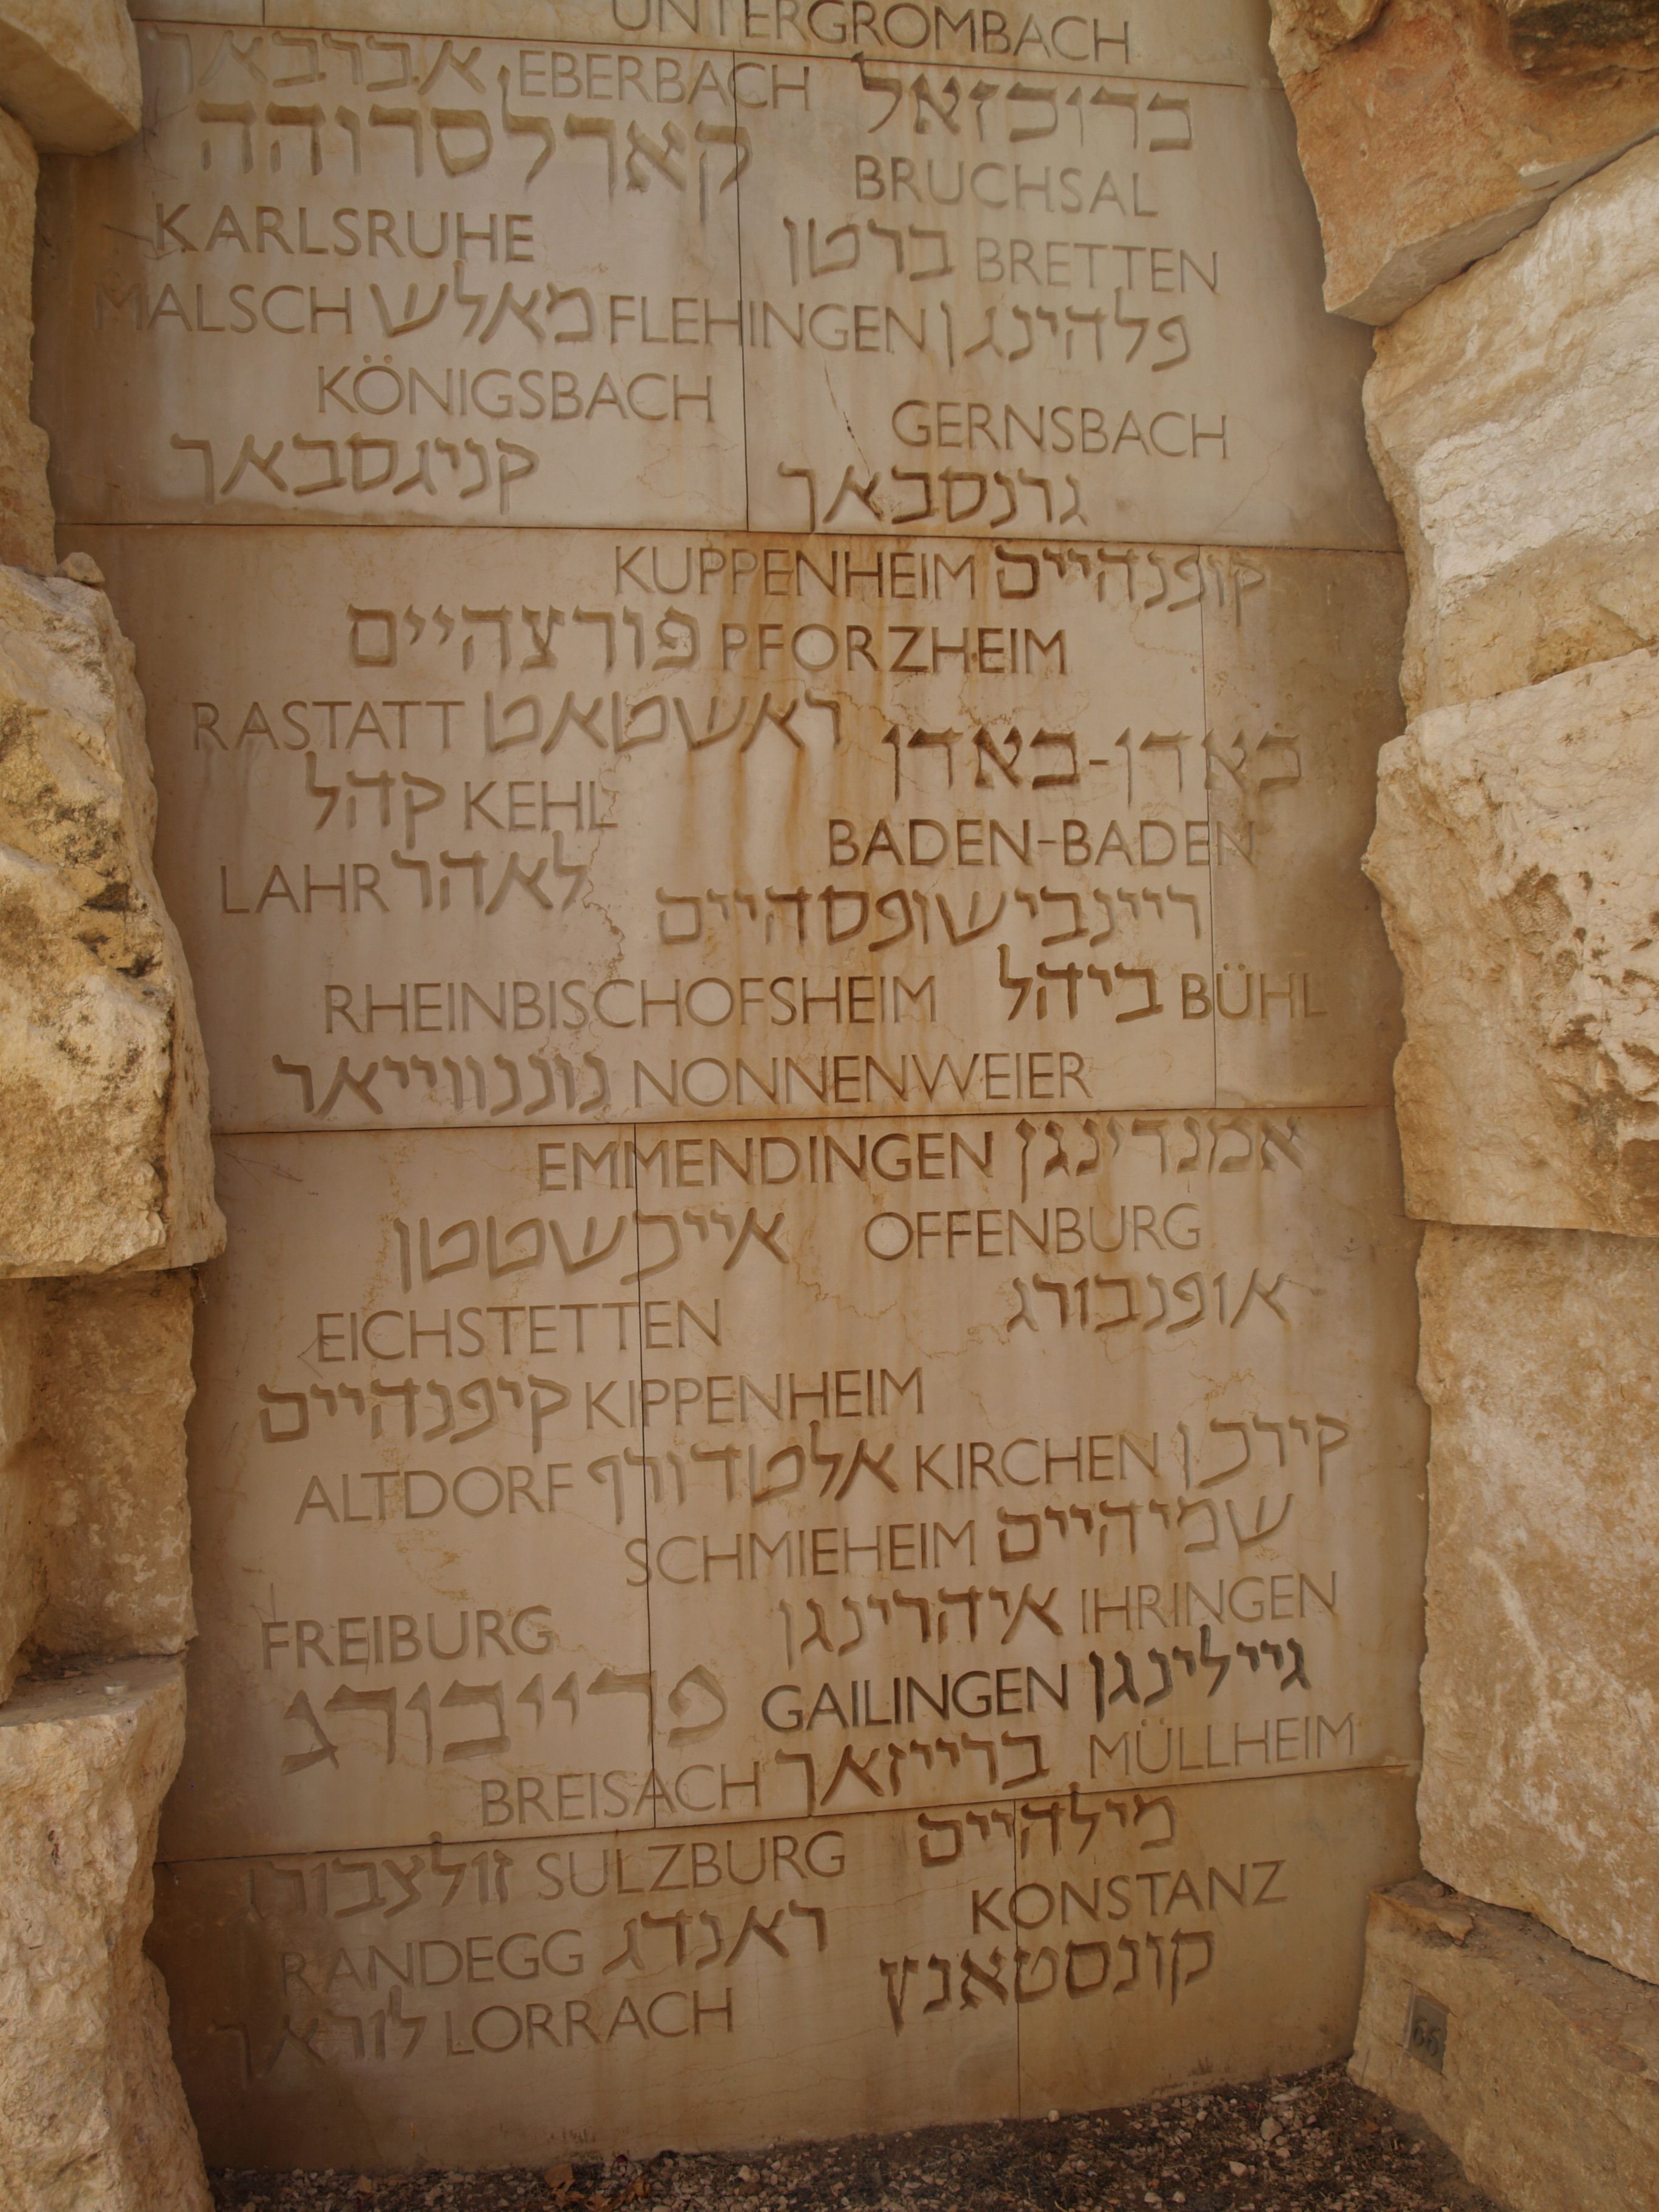 UNTERGROMBACH
EBERBACH אברבאך
ברוכזאל
קארלסרוהה
BRUCHSAL
KARLSRUHE
ברטן BRETTEN
MALSCH מאלש FLEHINGEN פלהינגן
KÖNIGSBACH
GERNSBACH
קניגסבאך
גרנסבאך
KUPPENHEIM קופנהיים
פורצהיים PFORZHEIM
RASTATT ראשטאט
באדן-באדן
קהל KEHL
BADEN-BADEN
LAHR לאהר
ריינבישופסהיים
RHEINBISCHOFSHEIM ביהל BÜHL
נוננווייאר NONNENWEIER
EMMENDINGEN אמנדינגן
אייכשטטן OFFENBURG
אופנבורג
EICHSTETTEN
קיפנהיים KIPPENHEIM
ALTDORF אלטדורף KIRCHEN קירכן
SCHMIEHEIM שמיהיים
איהרינגן IHRINGEN
FREIBURG
GAILINGEN גיילינגן
פרייבורג
BREISACH ברייזאך MÜLLHEIM
מילהיים
זולצבורג SULZBURG
KONSTANZ
RANDEGG ראנדג
קונסטאנץ
לוראך LORRACH
66